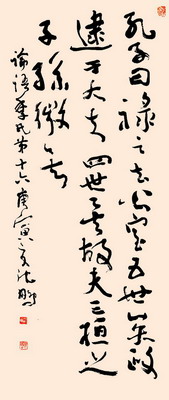 孔子曰禄之去公室五世矣政
逮于大夫四世矣故夫三桓之
子孙微矣
论语季氏第十六庚寅之夏沈鹏